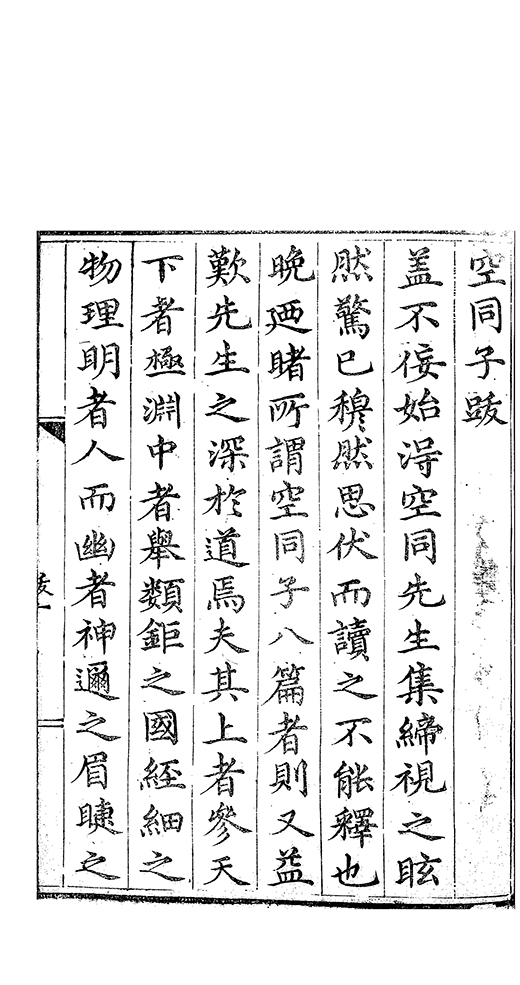 空同子跋
盖不佞始淂空同先生集締視之眩
然驚已穆然思伏而讀之不能釋也
晚廼睹所謂空同子八篇者則又益
歎先生之深於道焉夫其上者參天
下者極淵中者舉類鉅之國経細之
物理明者人而幽者神邇之眉睫之
跋一